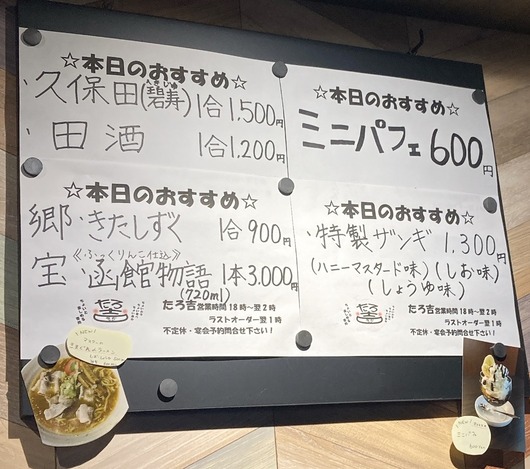 ☆本日のおすすめ☆
・久保田(碧寿)1合1,500円
へきじゅ
・田酒 1合1,200円
☆本日のおすすめ☆
ミニパフェ600円
☆本日のおすすめ☆
郷・きたしずく 1合900円
《ふっくりんこ仕込》
宝・函館物語 1本3,000円
(720ml)
たろ吉 営業時間 18時〜翌2時
ラストオーダー翌1時
不定休・宴会予約問合せ下さい!
☆本日のおすすめ☆
・特製ザンギ 1,300円
(ハニーマスタード味)(しお味)
(しょうゆ味)
たろ吉 営業時間 18時〜翌2時
ラストオーダー翌1時
不定休・宴会予約問合せ下さい!